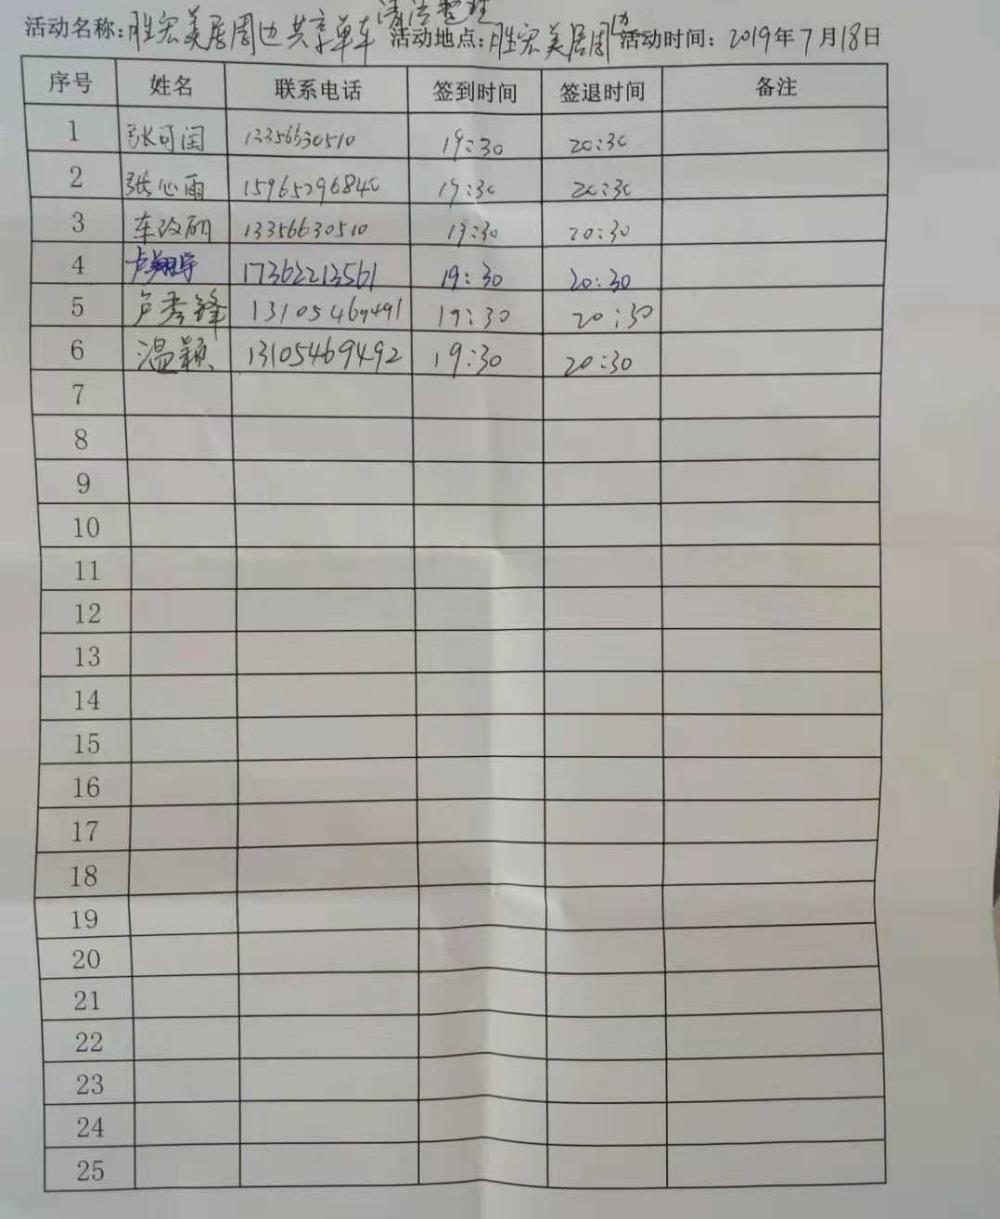 活动名称:胜宏美居周边共享单车清洁整理 活动地点:胜宏美居周边 活动时间:2019年7月18日
序号 姓名 联系电话 签到时间 签退时间 备注
1 张可闰 13356630510 19:30 20:30
2 张心雨 15965296840 19:30 20:30
3 车改丽 13356630510 19:30 20:30
4 卢翔宇 17362213561 19:30 20:30
5 卢秀锋 13105469491 19:30 20:30
6 温颖 13105469492 19:30 20:30
7
8
9
10
11
12
13
14
15
16
17
18
19
20
21
22
23
24
25